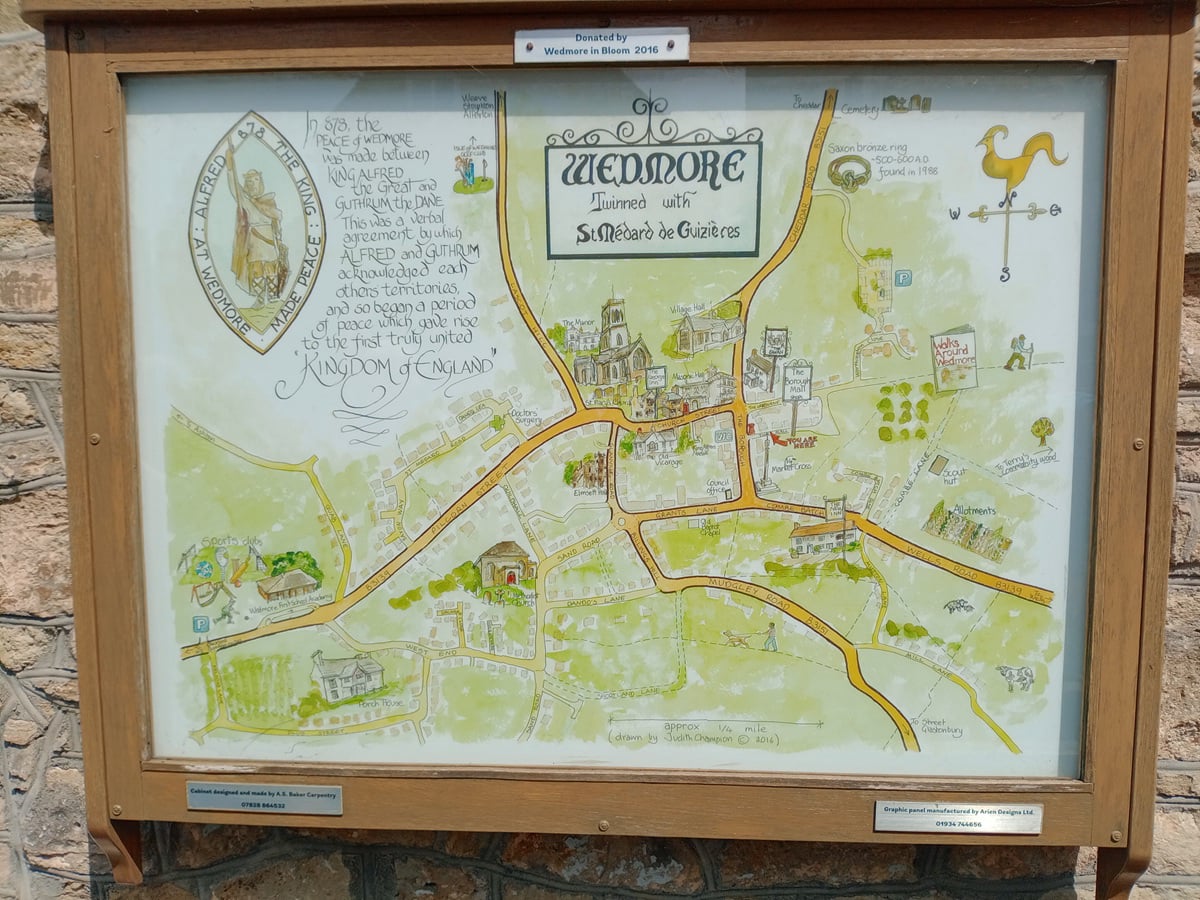 Donated by
Wedmore in Bloom 2016
ALFRED THE KING
AT WEDMORE MADE PEACE
878
In 878, the
PEACE of WEDMORE
was made between
KING ALFRED
the Great and
GUTHRUM the DANE
This was a verbal
agreement by which
ALFRED and GUTHRUM
acknowledged each
others territories,
and so began a period
of peace which gave rise
to the first truly united
"KINGDOM of ENGLAND"
Weare
Stoughton
Allerton
ISLE of WEDMORE
GOLF CLUB
WEDMORE
Twinned with
St. Médard de Guizières
To
Cheddar
Cemetery
CHEDDAR ROAD B3151
Saxon bronze ring
~500-600 A.D.
found in 1988
N
W
E
S
P
The Manor
Village Hall
Masonic Hall
The
Borough
Mall
Walks
Around
Wedmore
Doctors'
Surgery
CHURCH STREET
The Old
Vicarage
YOU ARE
HERE
Market Cross
Elmsett Hall
Council
office
GRANTS LANE
COMBE BATCH
Old
Baptist
Chapel
COMBE LANE
Scout
hut
To Terry's
Community Wood
Allotments
WELLS ROAD B3139
To Wells
B3139
PILCORN STREET
SAND ROAD
Methodist
Church
DANDO'S LANE
MUDGLEY ROAD B3151
MILL LANE
Sports clubs
Wedmore First School Academy
P
WEST END
Porch House
SHORTLAND LANE
approx 1/4 mile
(drawn by Judith Champion © 2016)
To Street
Glastonbury
Cabinet designed and made by A.S. Baker Carpentry
07828 864532
Graphic panel manufactured by Arien Designs Ltd.
01934 744656